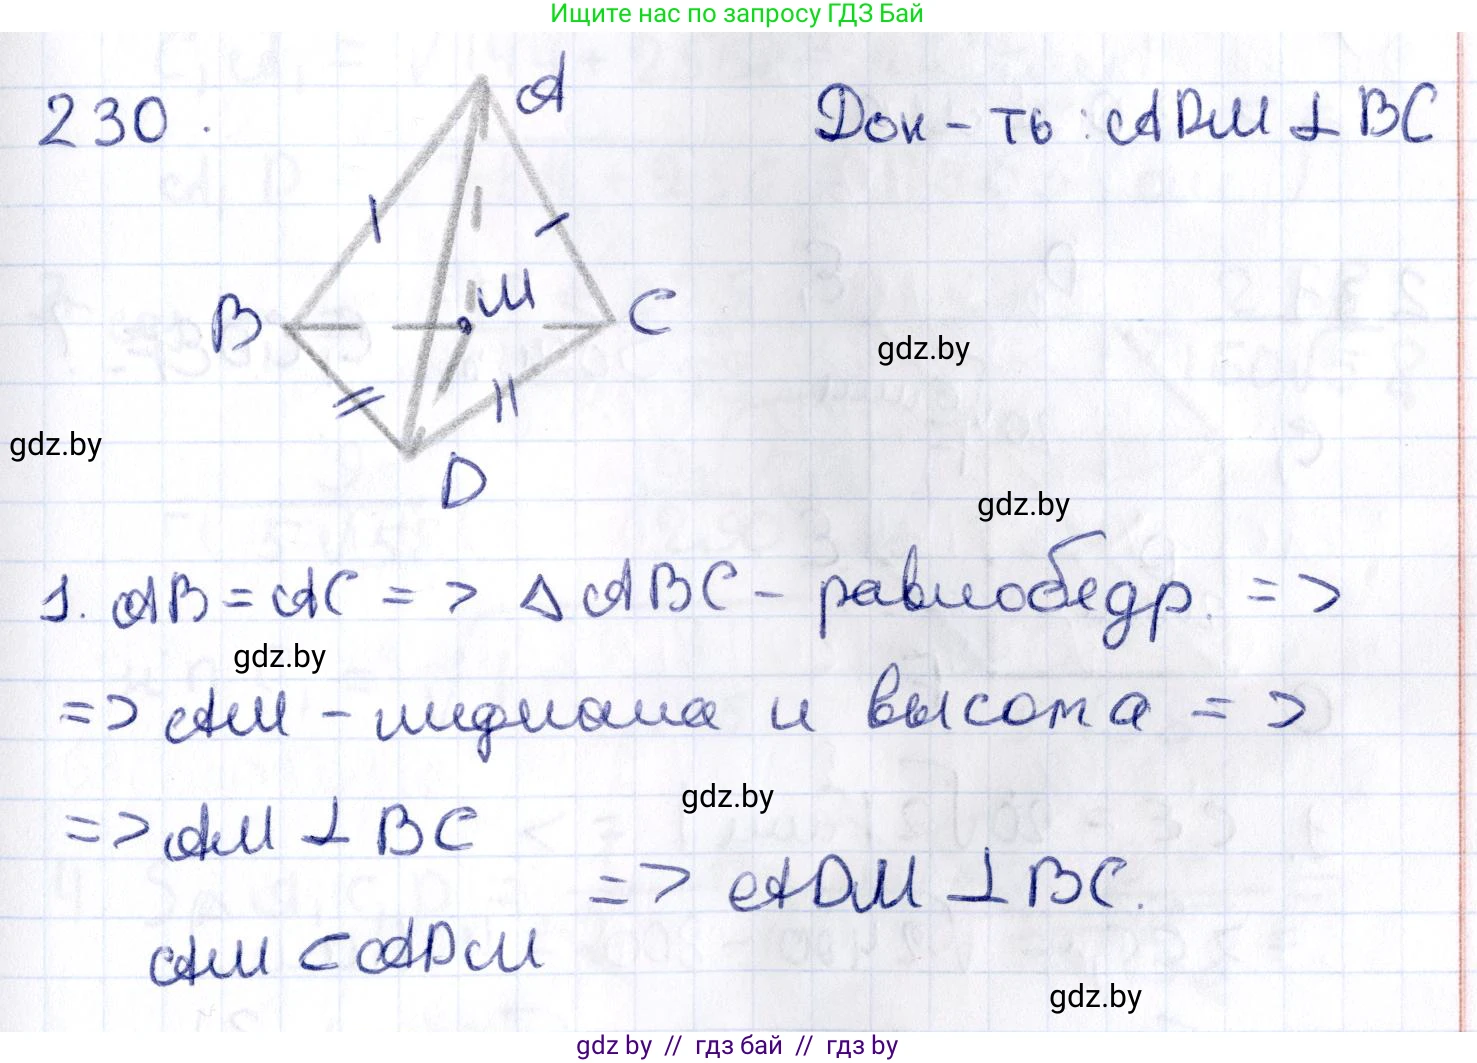 Ищите нас по запросу ГДЗ Бай
230.
A
Док-ть: ADM ⊥ BC
M
B
C
gdz.by
gdz.by
D
gdz.by
1. AB = AC => △ ABC - равнобедр. =>
gdz.by
=> AM - медиана и высота =>
gdz.by
=> AM ⊥ BC
=> ADM ⊥ BC.
AM ⊂ ADM
gdz.by
gdz by // гдз бай // гдз by